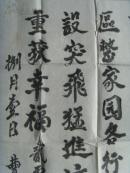 區誓家园各行
設突飛猛進
重获幸福
捌月壹日